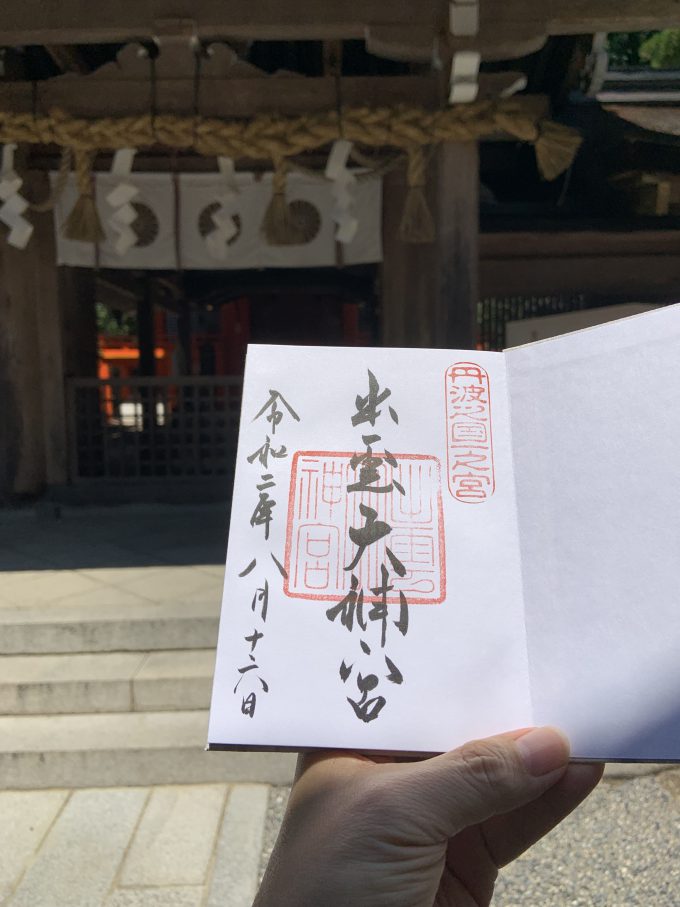 丹波之国一之宮
出雲大神宮
出雲
大
神宮
令和二年八月十六日